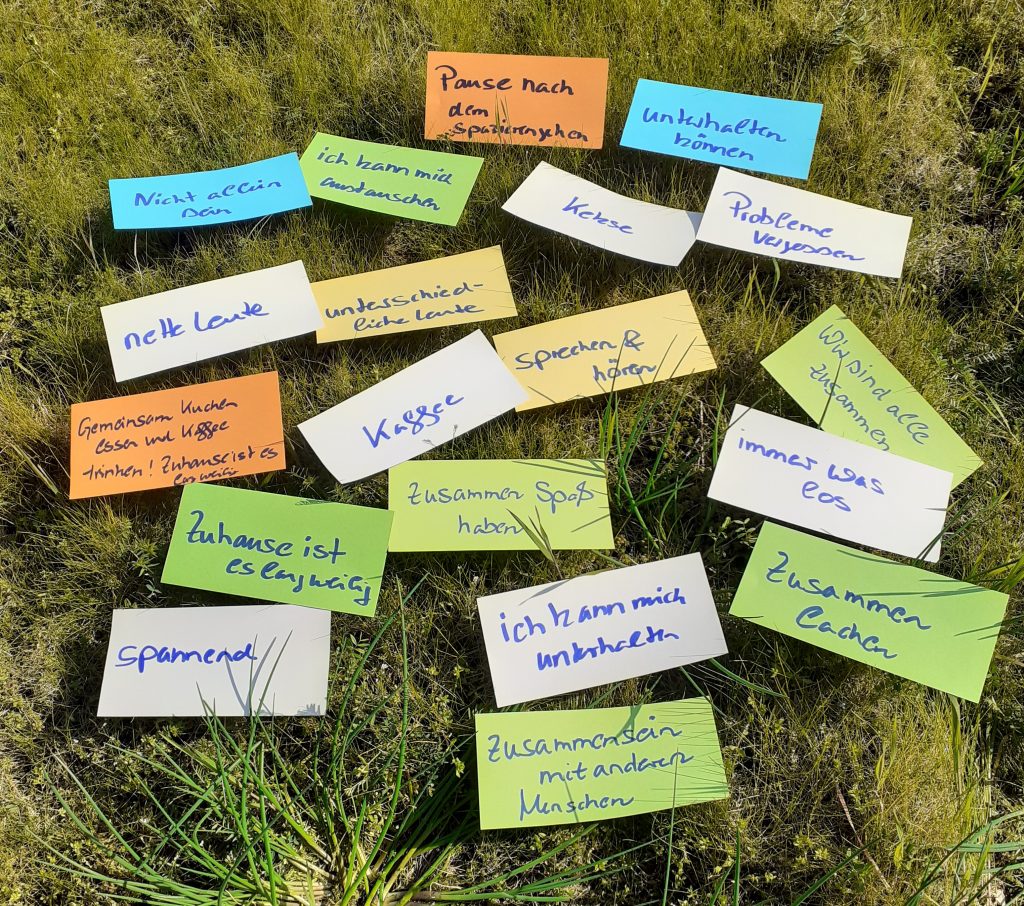 Pause nach
dem
Spazierengehen
unterhalten
können
Nicht allein
sein
ich kann mich
austauschen
Kekse
Probleme
vergessen
nette Leute
unterschied-
liche Leute
sprechen &
hören
Wir sind alle
zusammen
Gemeinsam Kuchen
essen und Kaffee
trinken! Zuhause ist es
langweilig
Kaffee
immer was
los
Zusammen Spaß
haben
Zuhause ist
es langweilig
Zusammen
lachen
ich kann mich
unterhalten
spannend
Zusammensein
mit anderen
Menschen